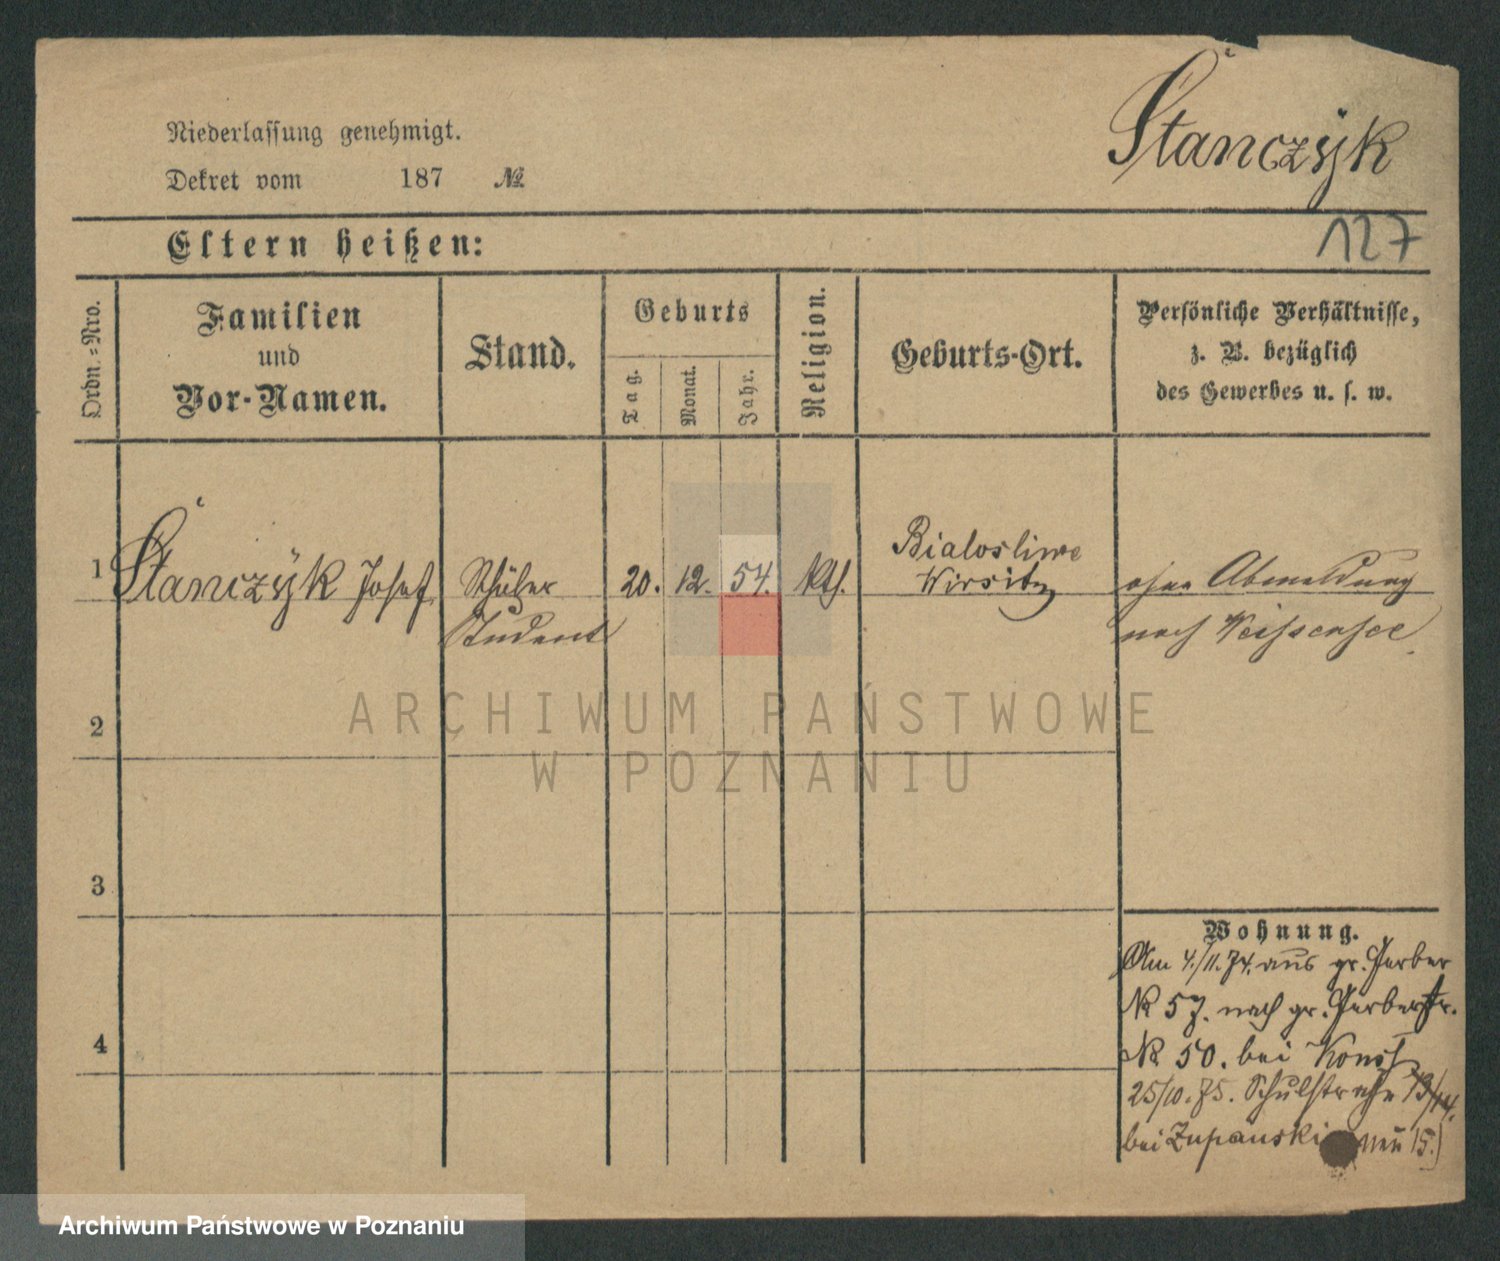 Stanczyk
Niederlassung genehmigt.
Dekret vom 187 №
127
Eltern heißen:
Ordn.=Nro.
Familien
und
Vor-Namen.
Stand.
Geburts
Tag.
Monat.
Jahr.
Religion.
Geburts-Ort.
Persönliche Verhältnisse,
z. B. bezüglich
des Gewerbes u. s. w.
1 Stanczyk Josef Schüler 20. 12. 54. kth. Bialosliwe
Wirsitz
Student
ohne Abmeldung
nach Weissensee
2
3
4
Wohnung.
Am 4./11. 74. aus gr. Gerber
№ 57. nach gr. Gerberstr.
№ 50. bei
25/10. 75. Schulstraße 13/14.
bei Zupanski neu 15.)
ARCHIWUM PAŃSTWOWE
W POZNANIU
Archiwum Państwowe w Poznaniu